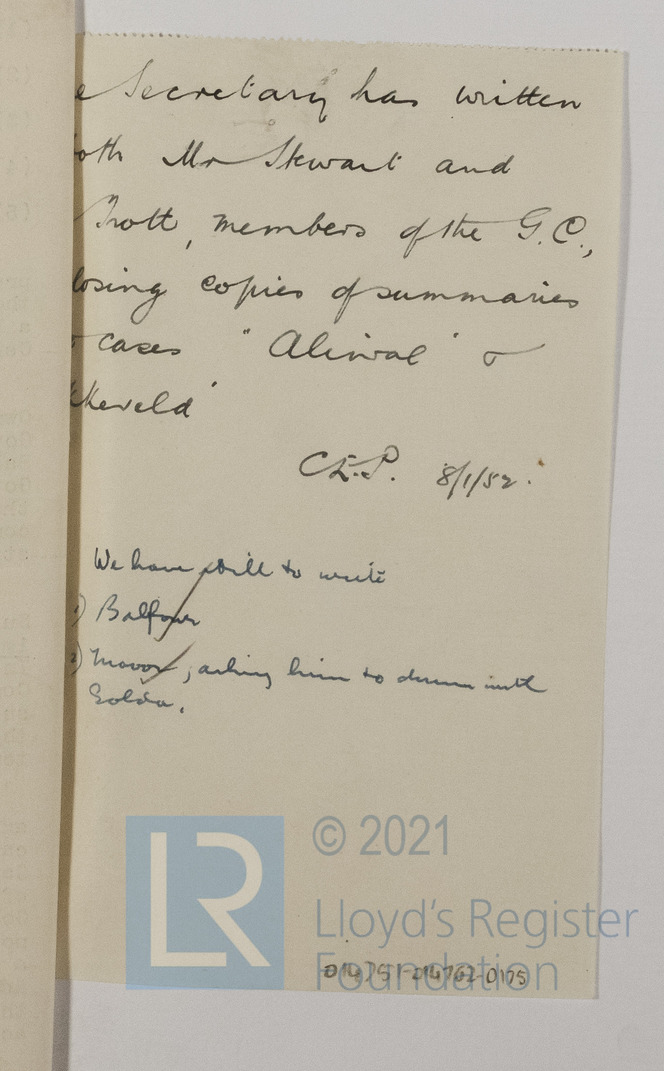 e Secretary has written
oth Mr Stewart and
Trott, members of the G.C.,
losing copies of summaries
cases "Aliwal" &
kkerela"
C.E.P. 8/1/52.
We have still to write
1) Balfour
2) Mavor, asking him to discuss with
Golda.
LR
© 2021
Lloyd's Register
Foundation
014751-014762-0175